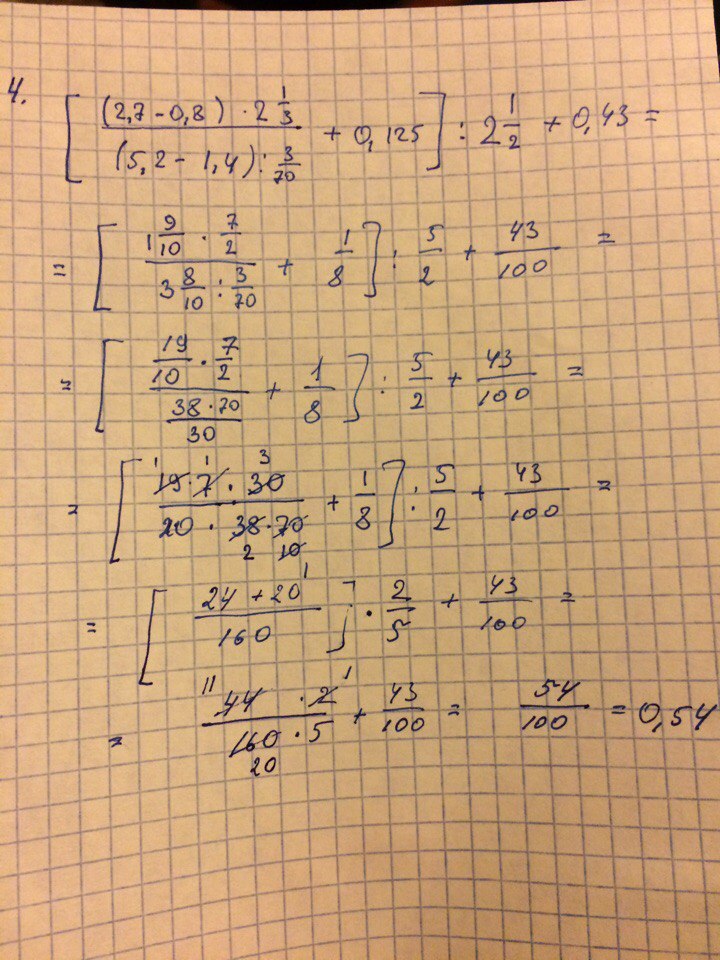 4. [ ((2,7 - 0,8) · 2 1/3) / ((5,2 - 1,4) : 3/70) + 0,125 ] : 2 1/2 + 0,43 =
= [ (1 9/10 · 7/2) / (3 8/10 : 3/70) + 1/8 ] : 5/2 + 43/100 =
= [ (19/10 · 7/2) / (38 · 70 / 30) + 1/8 ] : 5/2 + 43/100 =
1 1 3
= [ (19 · 7 · 30) / (20 · 38 · 70) + 1/8 ] : 5/2 + 43/100 =
2 10
1
= [ (24 + 20) / 160 ] · 2/5 + 43/100 =
11 1
= (44 · 2) / (160 · 5) + 43/100 = 54/100 = 0,54
20